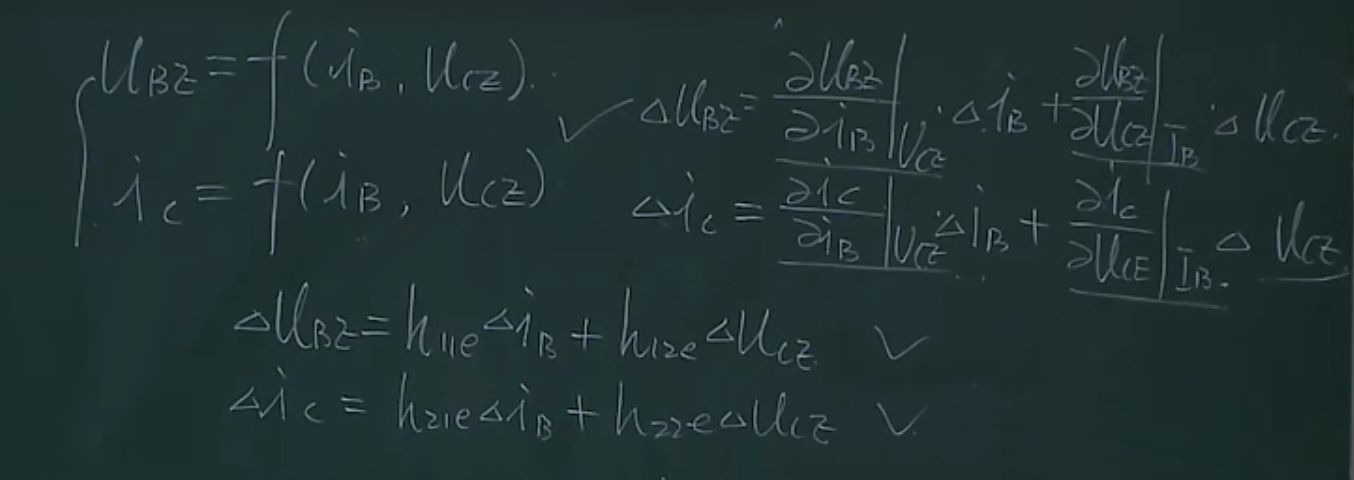 u_{BE} = f(i_B, u_{CE}).
i_C = f(i_B, u_{CE})
✓ Δu_{BE} = ∂u_{BE}/∂i_B |_{U_{CE}} · Δi_B + ∂u_{BE}/∂u_{CE} |_{I_B} · Δu_{CE}.
Δi_C = ∂i_C/∂i_B |_{U_{CE}} · Δi_B + ∂i_C/∂u_{CE} |_{I_B} · Δu_{CE}
Δu_{BE} = h_{11e} Δi_B + h_{12e} Δu_{CE} ✓
Δi_C = h_{21e} Δi_B + h_{22e} Δu_{CE} ✓